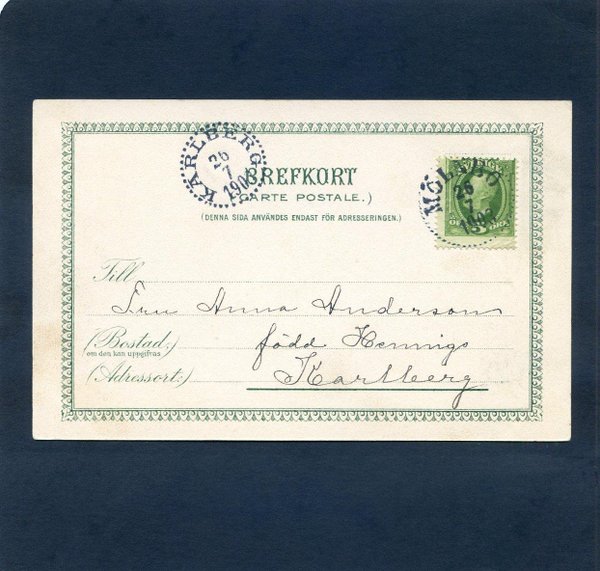 KARLBERG
26
7
190
BREFKORT
(CARTE POSTALE.)
(DENNA SIDA ANVÄNDES ENDAST FÖR ADRESSERINGEN.)
MÖLNBO
26
7
1903
5 ÖRE
Till
Fru Anna Anderson
(Bostad:)
om den kan uppgifvas
född Hennigs
(Adressort:)
Karlberg